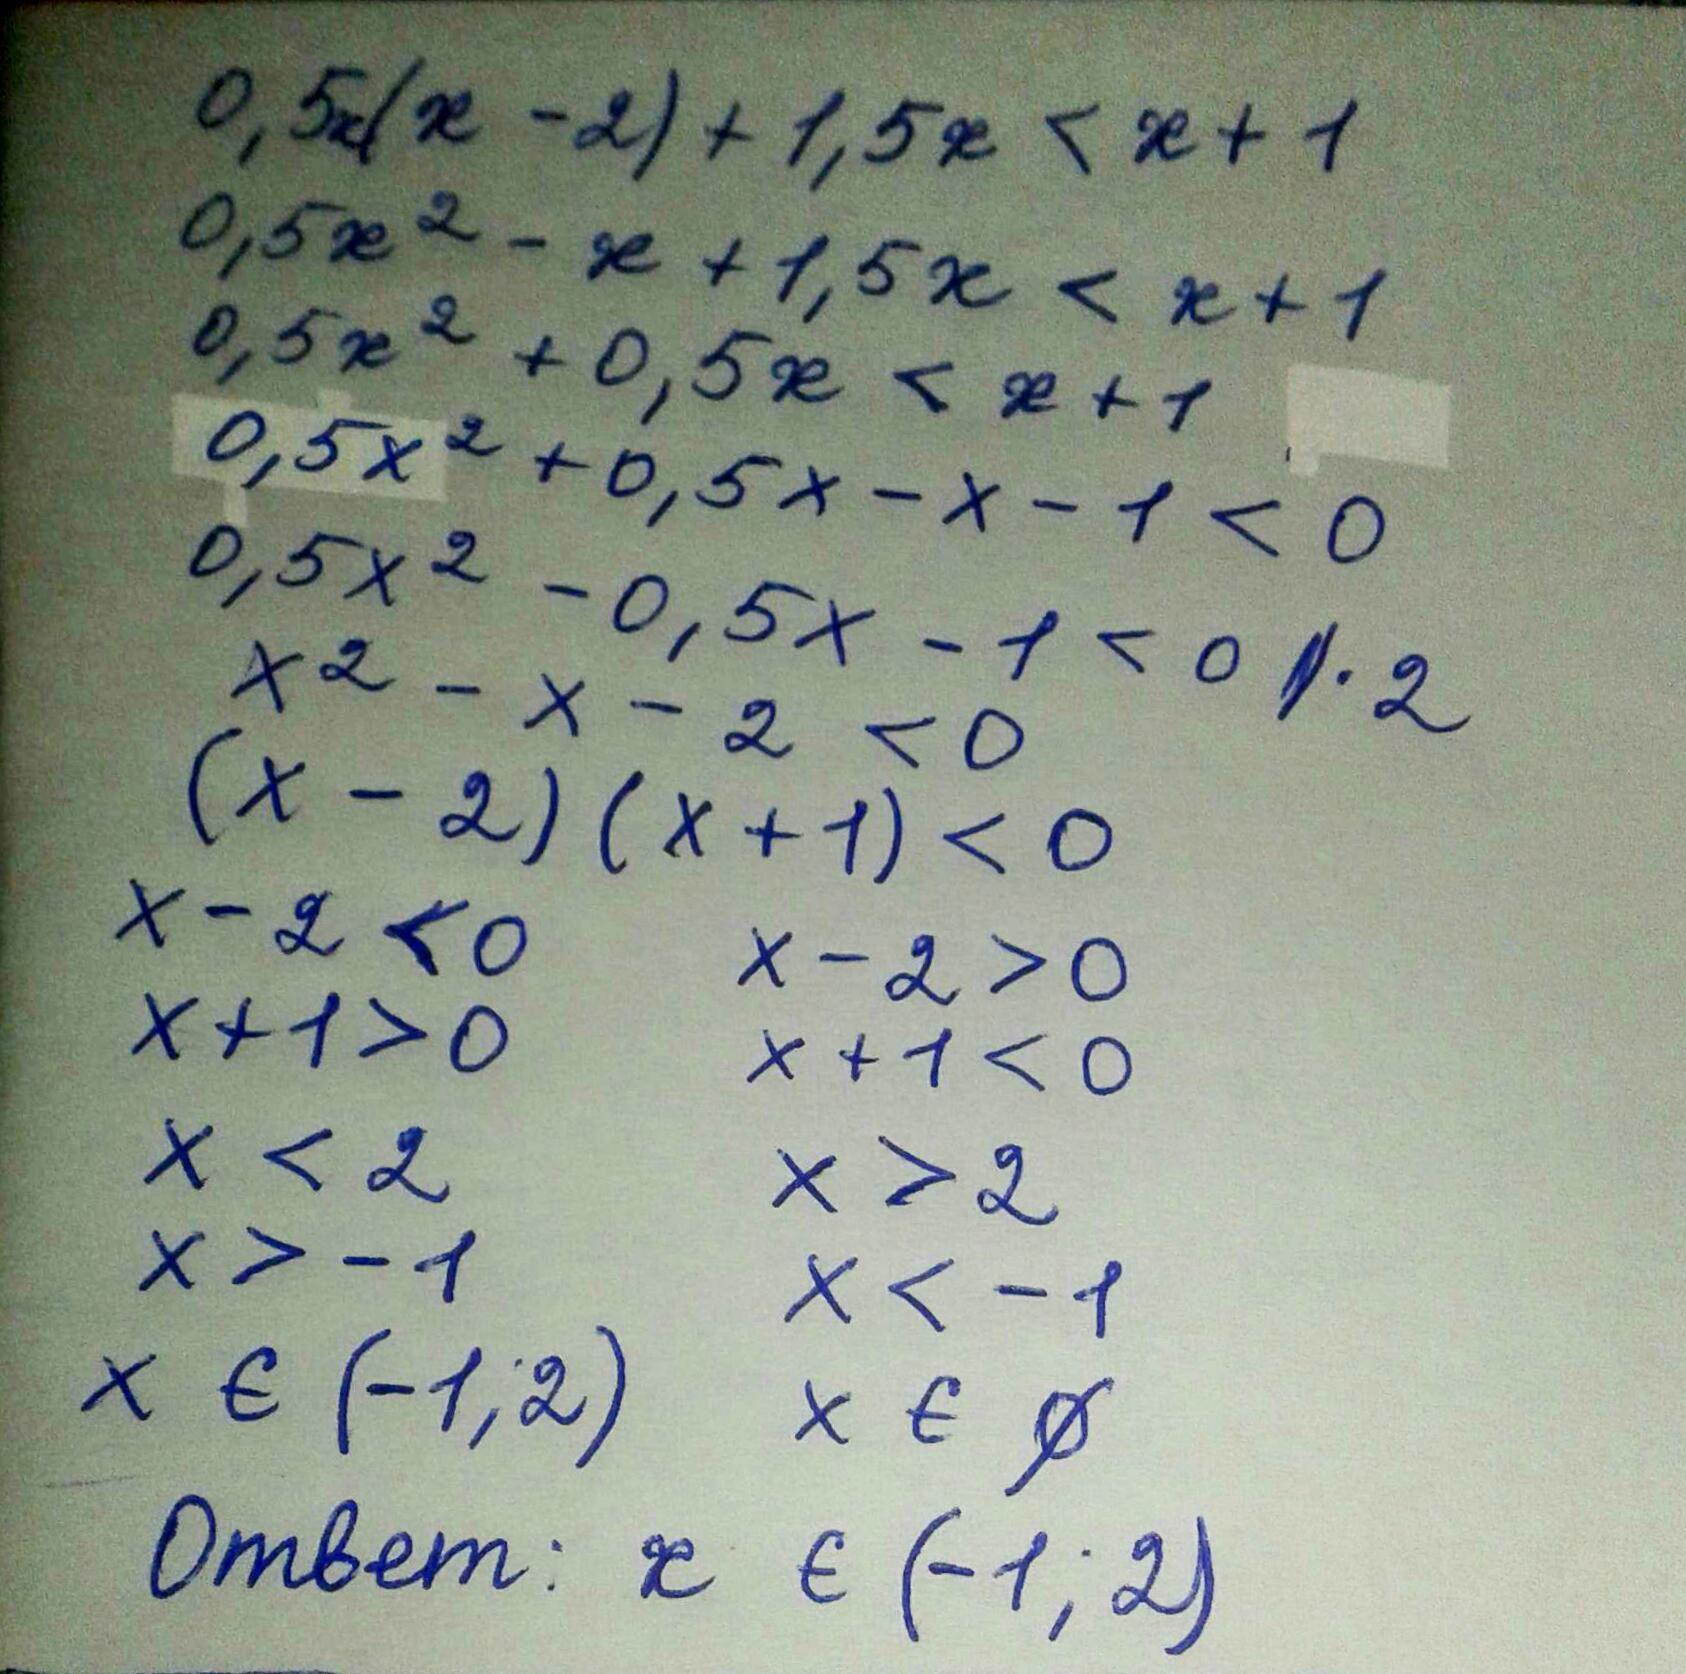 0,5x(x - 2) + 1,5x < x + 1
0,5x² - x + 1,5x < x + 1
0,5x² + 0,5x < x + 1
0,5x² + 0,5x - x - 1 < 0
0,5x² - 0,5x - 1 < 0 | · 2
x² - x - 2 < 0
(x - 2) (x + 1) < 0
x - 2 < 0 x - 2 > 0
x + 1 > 0 x + 1 < 0
x < 2 x > 2
x > -1 x < -1
x ∈ (-1; 2) x ∈ ∅
Ответ: x ∈ (-1; 2)